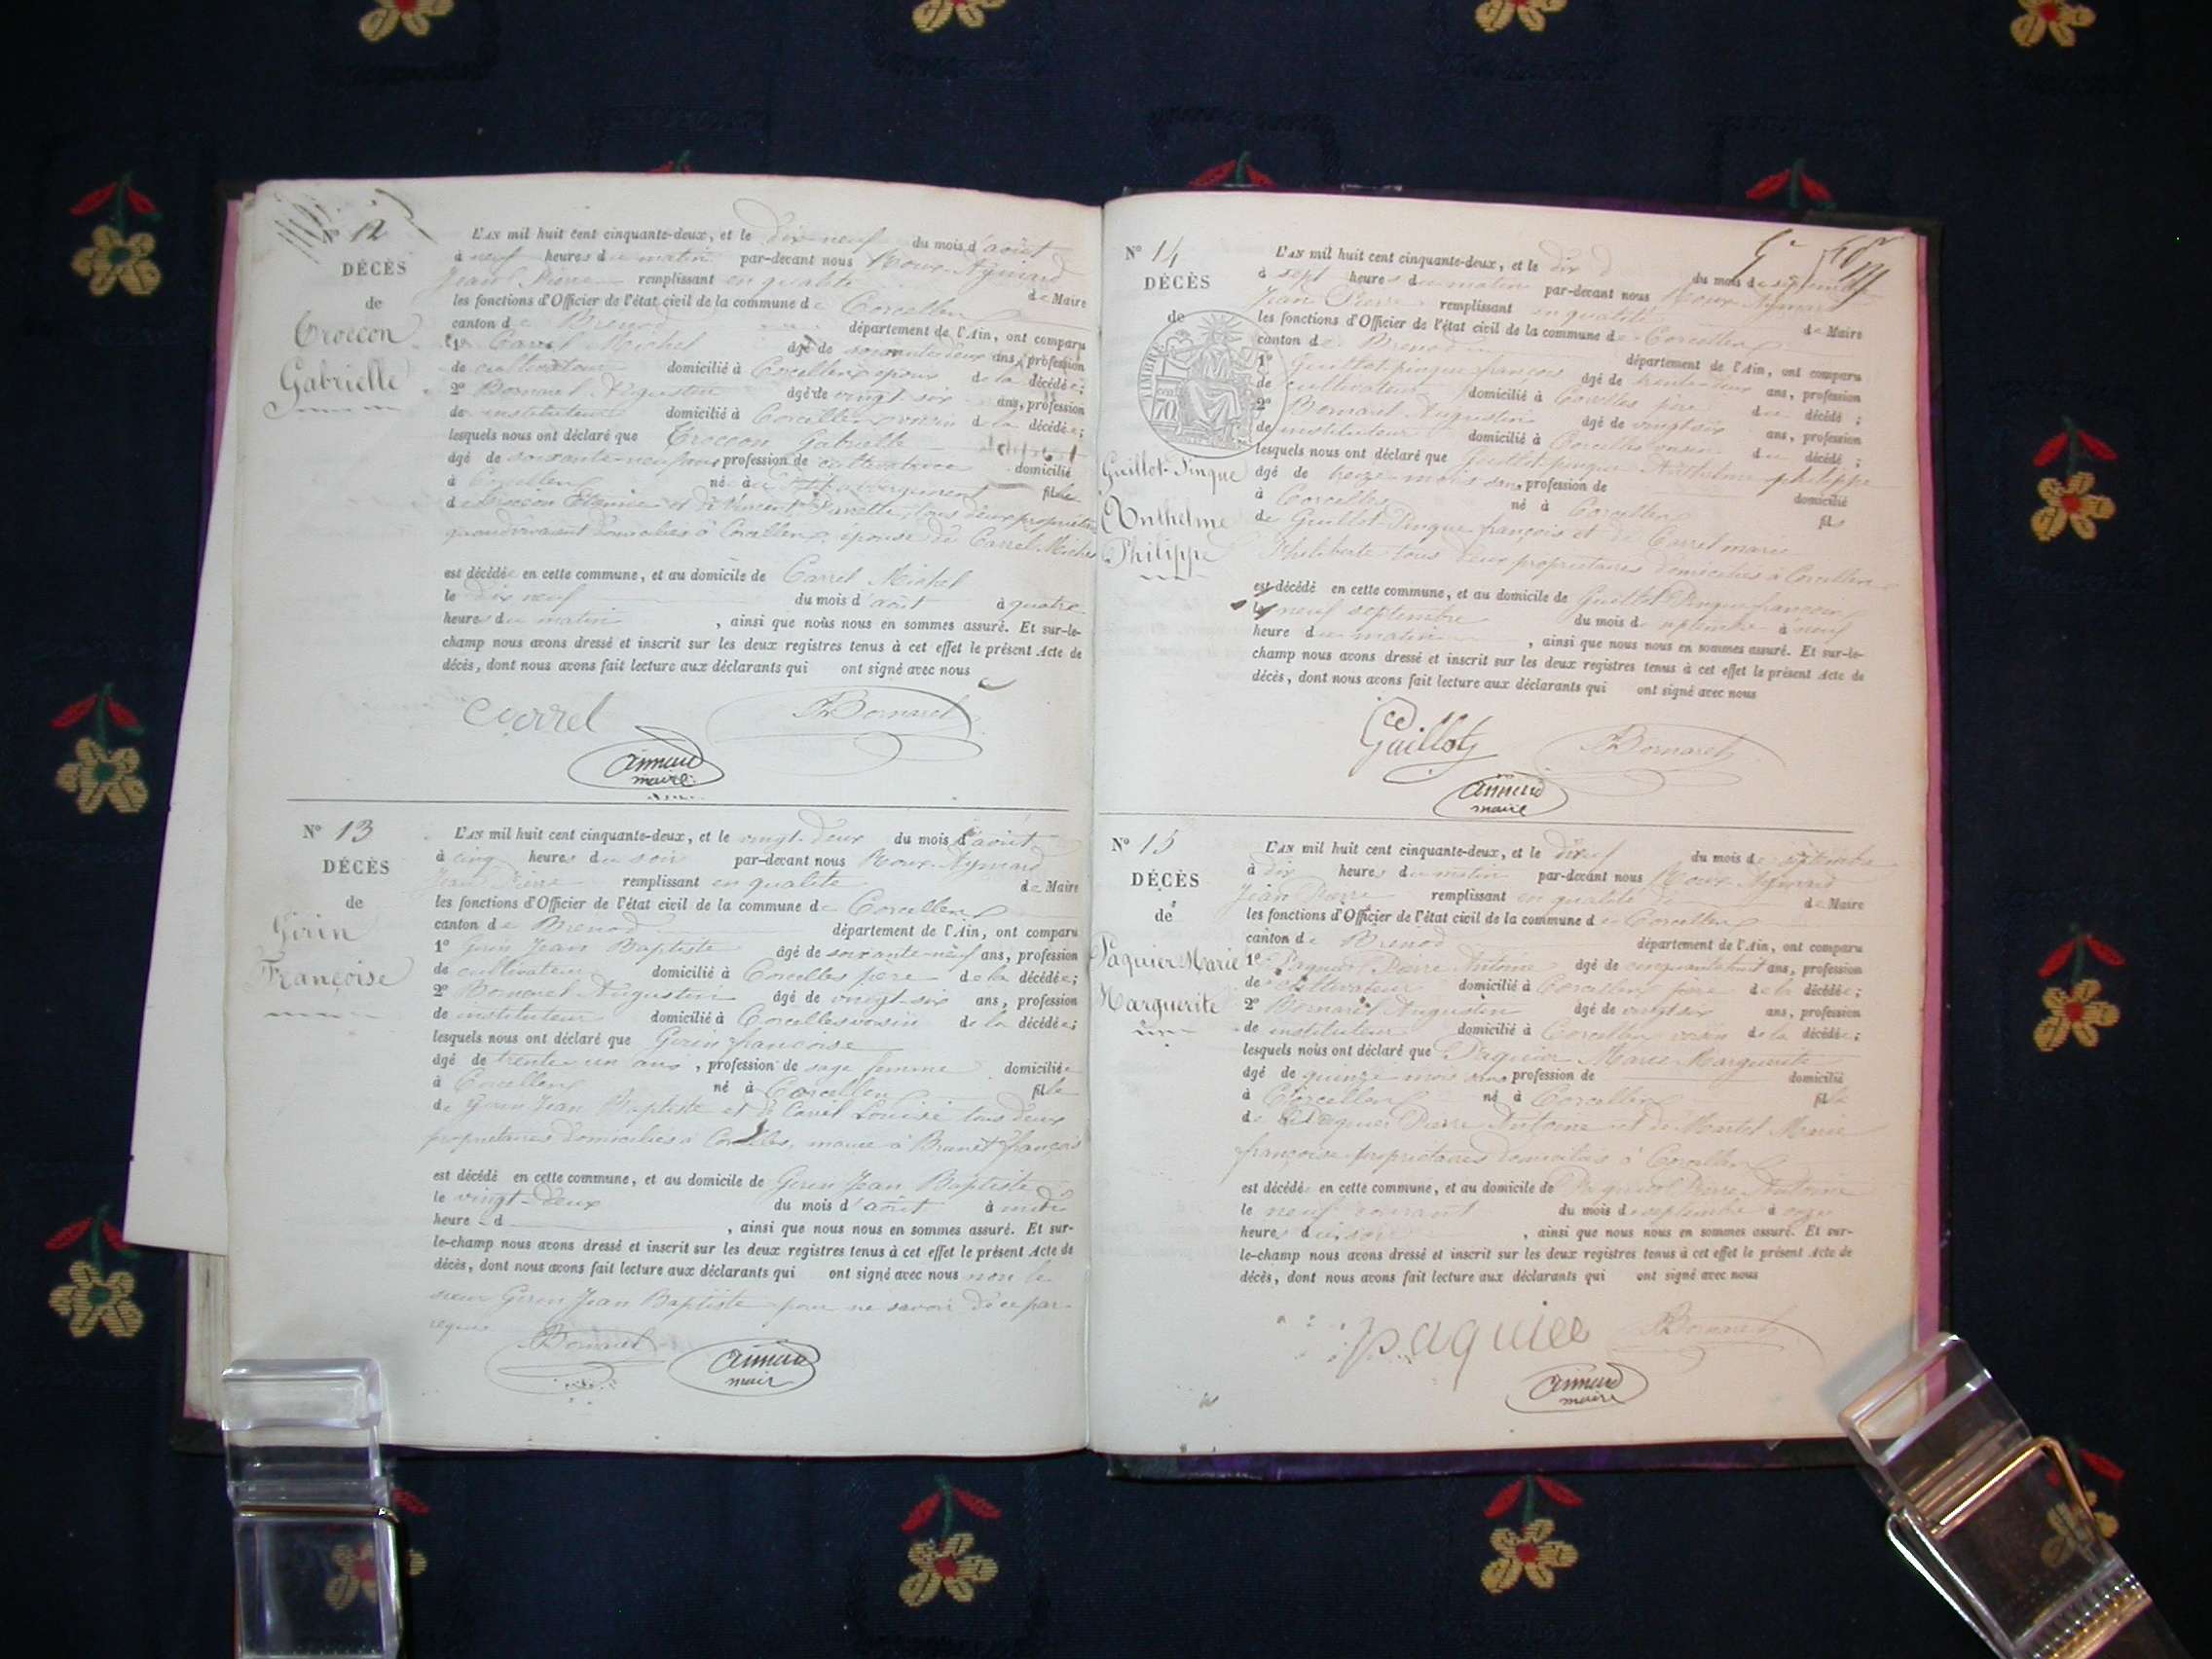 12
DÉCÈS
de
Troccon
Gabrielle
L'AN mil huit cent cinquante-deux, et le dix-neuf du mois d'août
à neuf heures du matin par-devant nous Roux-Aymard
Jean Pierre remplissant en qualité de Maire
les fonctions d'Officier de l'état civil de la commune de Corcelles
canton de Brenod département de l'Ain, ont comparu
1° Carrel Michel âgé de soixante-deux ans, profession
de cultivateur domicilié à Corcelles époux de la décédée;
2° Bornarel Augustin âgé de vingt six ans, profession
de instituteur domicilié à Corcelles voisin de la décédée;
lesquels nous ont déclaré que Troccon Gabrielle
âgé de soixante-neuf ans profession de cultivatrice domicilié
à Corcelles né à fille
de Troccon Etienne et de Vincent tous deux propriétaires
quand vivaient domiciliés à Corcelles, épouse de Carrel Michel
est décédée en cette commune, et au domicile de Carrel Michel
le dix neuf du mois d'août à quatre
heures du matin , ainsi que nous nous en sommes assuré. Et sur-le-
champ nous avons dressé et inscrit sur les deux registres tenus à cet effet le présent Acte de
décès, dont nous avons fait lecture aux déclarants qui ont signé avec nous
Carrel Bornarel
aimard
maire
N° 13
DÉCÈS
de
Girin
Françoise
L'AN mil huit cent cinquante-deux, et le vingt-deux du mois d'août
à cinq heures du soir par-devant nous Roux-Aymard
Jean Pierre remplissant en qualité de Maire
les fonctions d'Officier de l'état civil de la commune de Corcelles
canton de Brenod département de l'Ain, ont comparu
1° Girin Jean Baptiste âgé de soixante-neuf ans, profession
de cultivateur domicilié à Corcelles père de la décédée;
2° Bornarel Augustin âgé de vingt-six ans, profession
de instituteur domicilié à Corcelles voisin de la décédée;
lesquels nous ont déclaré que Girin françoise
âgé de trente un ans , profession de sage femme domiciliée
à Corcelles né à Corcelles fille
de Girin Jean Baptiste et de Carrel Louise tous deux
propriétaires domiciliés à Corcelles, mariée à Brunet françois
est décédé en cette commune, et au domicile de Girin Jean Baptiste
le vingt-deux du mois d'août à midi
heure d , ainsi que nous nous en sommes assuré. Et sur-
le-champ nous avons dressé et inscrit sur les deux registres tenus à cet effet le présent Acte de
décès, dont nous avons fait lecture aux déclarants qui ont signé avec nous non le
sieur Girin Jean Baptiste pour ne savoir de ce par
requis
Bornarel aimard
mair
N° 14
DÉCÈS
de
TIMBRE
70
Guillot-Pingue
Anthelme
Philippe
L'AN mil huit cent cinquante-deux, et le dix du mois de septembre
à sept heures du matin par-devant nous Roux Aymard
Jean Pierre remplissant en qualité de Maire
les fonctions d'Officier de l'état civil de la commune de Corcelles
canton de Brenod département de l'Ain, ont comparu
1° Guillot-pingue françois âgé de trente-deux ans, profession
de cultivateur domicilié à Corcelles père du décédé;
2° Bornarel Augustin âgé de vingt six ans, profession
de instituteur domicilié à Corcelles voisin du décédé;
lesquels nous ont déclaré que Guillot-pingue Anthelme philippe
âgé de treize mois sans profession de domicilié
à Corcelles né à Corcelles fils
de Guillot-Pingue françois et de Carrel marie
Philiberte tous deux propriétaires domiciliés à Corcelles
est décédé en cette commune, et au domicile de Guillot-Pingue françois
le neuf septembre du mois de septembre à neuf
heure du matin , ainsi que nous nous en sommes assuré. Et sur-le-
champ nous avons dressé et inscrit sur les deux registres tenus à cet effet le présent Acte de
décès, dont nous avons fait lecture aux déclarants qui ont signé avec nous
Guillot Bornarel
aimard
maire
N° 15
DÉCÈS
de
Paquier Marie
Marguerite
L'AN mil huit cent cinquante-deux, et le du mois de septembre
à dix heures du matin par-devant nous Roux-Aymard
Jean Pierre remplissant en qualité de de Maire
les fonctions d'Officier de l'état civil de la commune de Corcelles
canton de Brenod département de l'Ain, ont comparu
1° Paquier Pierre Antoine âgé de cinquante huit ans, profession
de cultivateur domicilié à Corcelles père de la décédée;
2° Bornarel Augustin âgé de vingt six ans, profession
de instituteur domicilié à Corcelles voisin de la décédée;
lesquels nous ont déclaré que Paquier Marie Marguerite
âgé de quinze mois sans profession de domicilié
à Corcelles né à Corcelles fille
de Paquier Pierre Antoine et de Martel Marie
françoise propriétaires domiciliés à Corcelles
est décédée en cette commune, et au domicile de Paquier Pierre Antoine
le neuf courant du mois de septembre à onze
heures du soir , ainsi que nous nous en sommes assuré. Et sur-
le-champ nous avons dressé et inscrit sur les deux registres tenus à cet effet le présent Acte de
décès, dont nous avons fait lecture aux déclarants qui ont signé avec nous
paquier Bornarel
aimard
maire